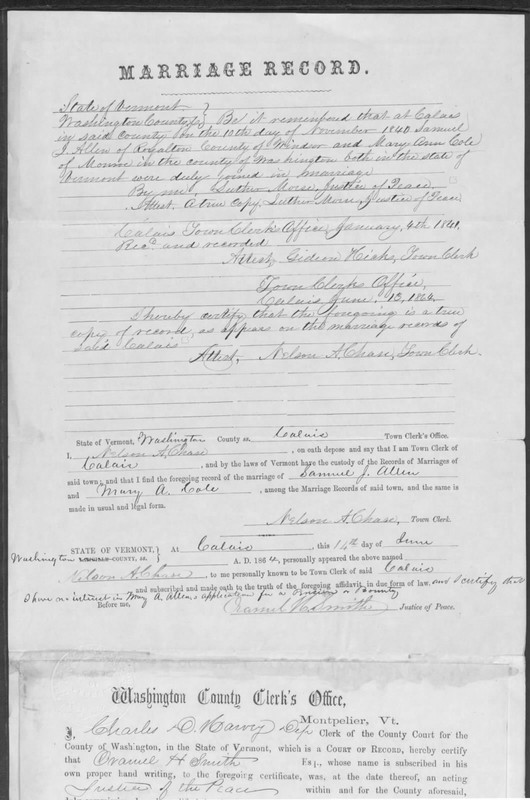 MARRIAGE RECORD.
State of Vermont
Washington County ss } Be it remembered that at Calais
in said County on the 10th day of November 1840 Samuel
J. Allen of Royalton County of Windsor and Mary Ann Cole
of Monroe in the county of Washington both in the state of
Vermont were duly joined in marriage
By me, Luther Morse, Justice of Peace
Attest. A true Copy, Luther Morse, Justice of Peace
Calais Town Clerk Office, January, 4th 1841.
Recd and recorded
Attest, Gideon Hicks, Town Clerk
Town Clerks Office,
Calais June. 13, 1864.
I hereby certify that the foregoing is a true
copy of record, as appears on the marriage records of
said Calais
Attest, Nelson A. Chase, Town Clerk.
State of Vermont, Washington County ss. Calais Town Clerk's Office.
I, Nelson A. Chase, on oath depose and say that I am Town Clerk of
Calais, and by the laws of Vermont have the custody of the Records of Marriages of
said town; and that I find the foregoing record of the marriage of Samuel J. Allen
and Mary A. Cole, among the Marriage Records of said town, and the same is
made in usual and legal form.
Nelson A. Chase, Town Clerk.
STATE OF VERMONT, } At Calais, this 14th day of June
Washington COUNTY, ss. A. D. 1864, personally appeared the above named
Nelson A. Chase, to me personally known to be Town Clerk of said Calais
, and subscribed and made oath to the truth of the foregoing affidavit, in due form of law. and I certify that
I have no interest in Mary A. Allen's application for a Pension or Bounty
Before me, Oramel H. Smith Justice of Peace.
Washington County Clerk's Office,
Montpelier, Vt.
I, Charles D. Harvey Dep Clerk of the County Court for the
County of Washington, in the State of Vermont, which is a COURT OF RECORD, hereby certify
that Oramel H Smith Esq., whose name is subscribed in his
own proper hand writing, to the foregoing certificate, was, at the date thereof, an acting
Justice of the Peace within and for the County aforesaid,